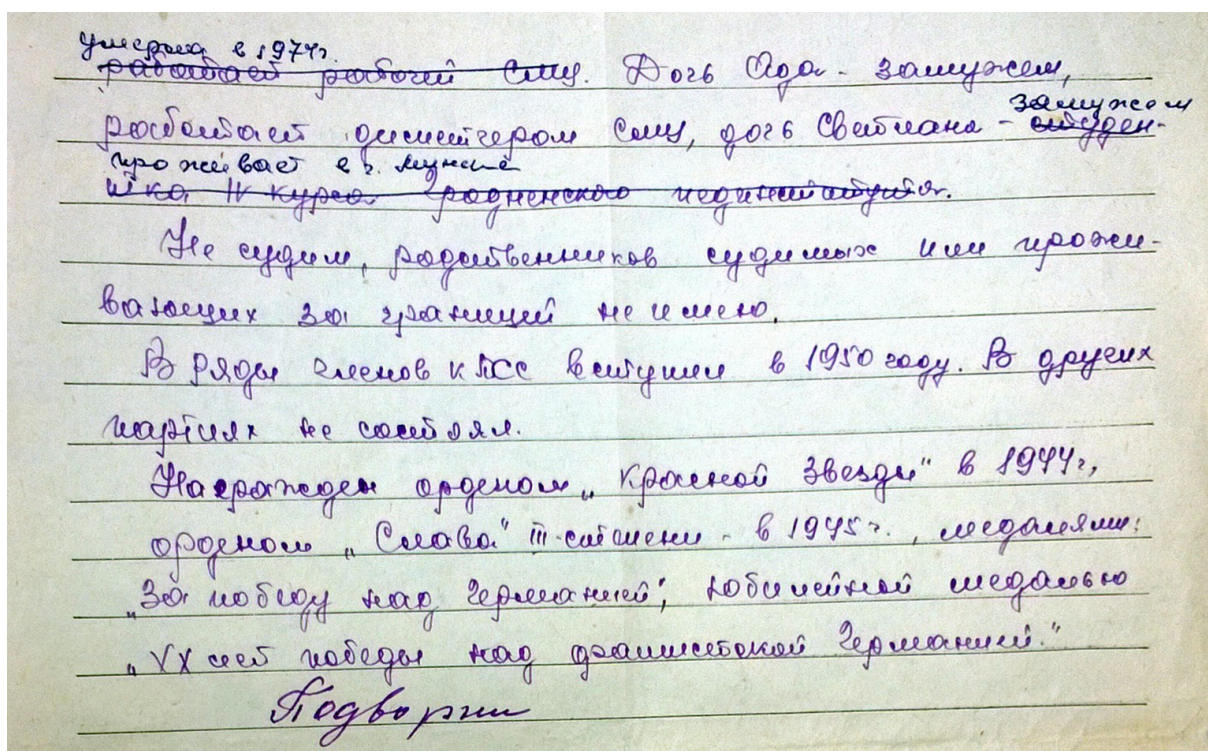 умерла в 1974г.
работает рабочей смц. Дочь Ада - замужем,
замужем
работает диспетчером смц, дочь Светлана - студен-
проживает в г. Минске
тка IV курса родненского пединститута.
Не судим, родственников судимых или прожи-
вающих за границей не имею.
В ряды членов КПСС вступил в 1950 году. В других
партиях не состоял.
Награжден орденом „Красной Звезды" в 1944г,
орденом „Слава" III-степени - в 1945г., медалями:
„За победу над Германией", юбилейной медалью
„ХХ лет победы над фашистской Германией."